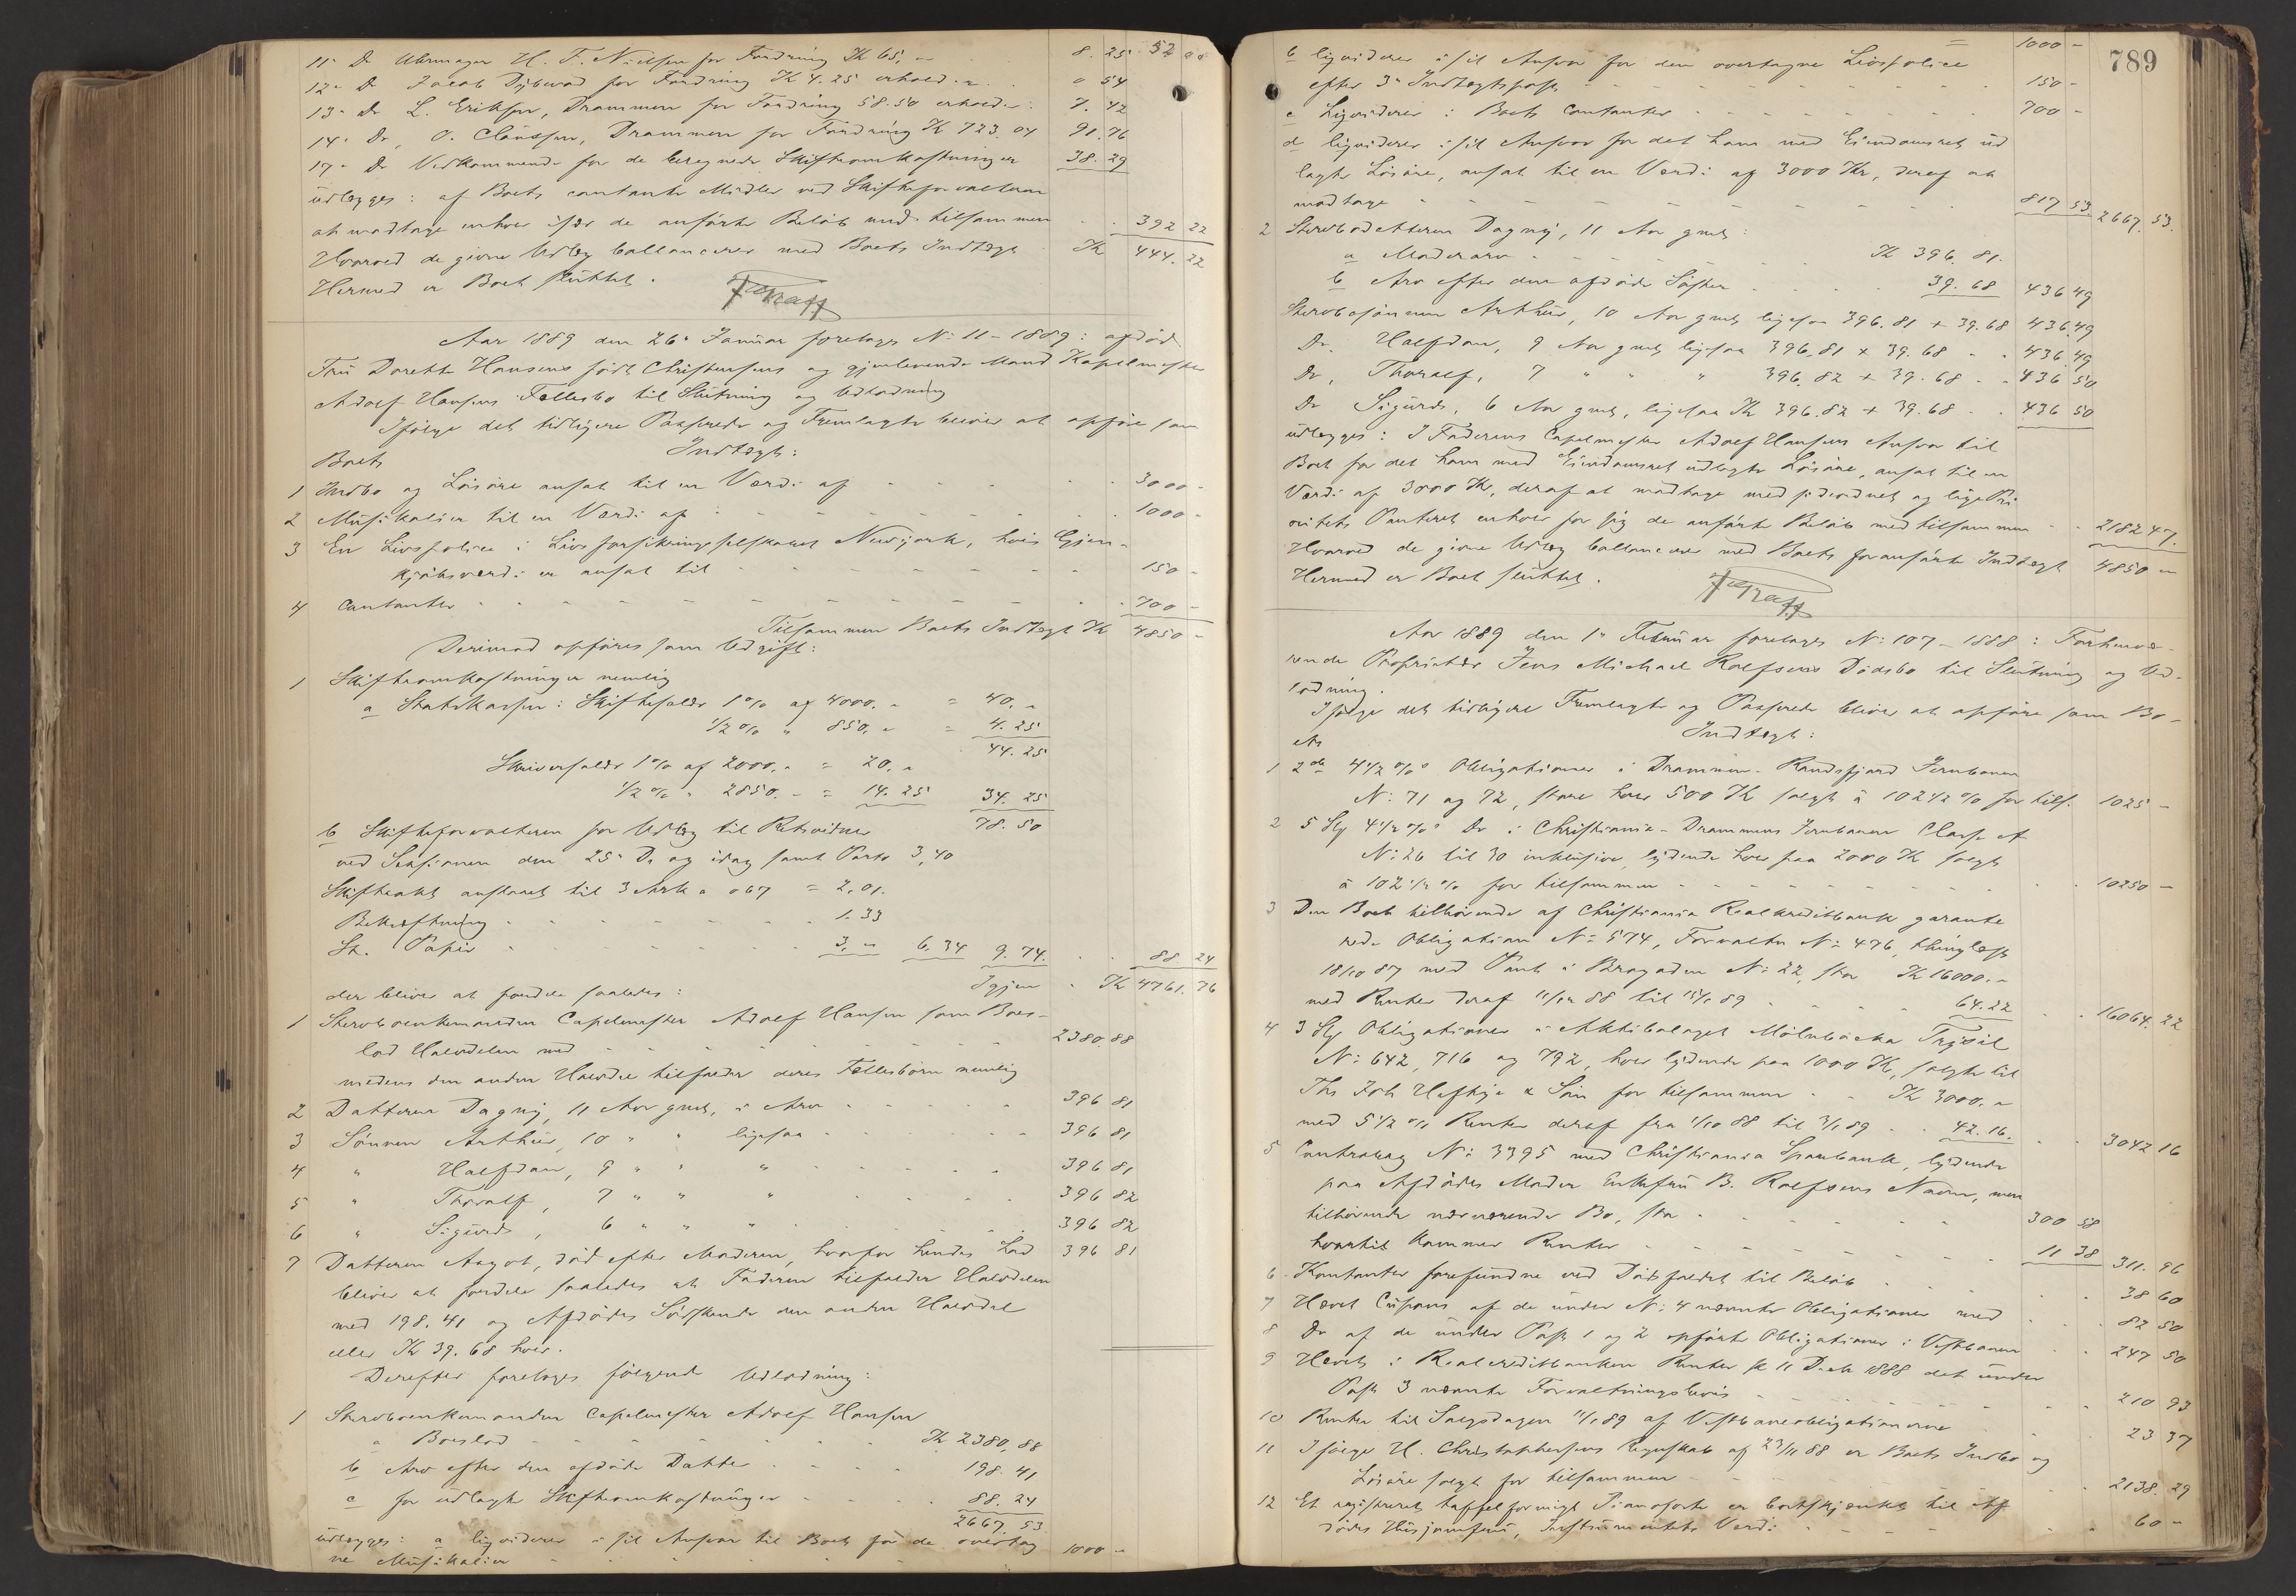 11. Do Uhrmager H. F. Nielsen for Fordring Kr 65, " 8. 25 52 "
12. Do Jacob Dybwad for Fordring Kr 4. 25 erhold. " 54
13. Do L. Eriksen, Drammen for Fordring 58. 50 erhold. 7. 42
14. Do, O. Claussen, Drammen for Fordring Kr 723. 04 91. 76
17. Do Vedkommende for de beregnede Skifteomkostninger 38. 29
udlægges: af Boets contante Midler ved Skifteforvalteren
at modtage enhver især de anførte Beløb med tilsammen 392 22
Hvorved de givne Udlæg ballancerer med Boets Indtægt Kr 444. 22
Hermed er Boet sluttet.
Aar 1889 den 26. Januar foretages No 11 - 1889: afdød
Fru Dorette Hansens født Christensens og gjenlevende Mand Kapelmester
Adolf Hansens Fællesbo til Slutning og Udlodning
Ifølge det tidligere Passerede og Fremlagte bliver at opføre som
Boets Indtægt:
1 Indbo og Løsøre ansat til en Værdi af 3000 -
2 Musikalier til en Værdi af 1000 -
3 En Livspolice i Livsforsikringsselskabet Newyork, hvis Gjen-
kjøbsværdi er ansat til 150 -
4 Contanter 700 -
Tilsammen Boets Indtægt Kr 4850 -
Derimod opføres som Udgift:
1 Skifteomkostninger nemlig
a Statskassen: Skiftefaldr 1% af 4000. " = 40. "
1/2 % " 850. " = 4. 25
44. 25
Skriverfaldr 1% af 2000. " = 20. "
1/2 % " 2850. - = 14. 25 34. 25
78. 50
b Skifteforvalteren for Udlæg til Retsvidner
ved Sessionen den 25. Ds og idag samt Porto 3,40
Skifteakt anslaaet til 3 Ark a 067 = 2,01.
Bekræftning 1. 33
St. Papir 3, " 6, 34 9. 74. 88. 24
Igjen Kr 4761. 76
der bliver at fordele saaledes:
1 Sterboenkemanden Capelmester Adolf Hansen som Boes-
lod Halvdelen med 2380. 88
medens den anden Halvdel tilfalder deres Fællesbørn nemlig
2 Datteren Dagny, 11 Aar gml, i Arv 396 81
3 Sønnen Arthur, 10 " " ligesaa 396 81
4 " Halfdan, 9 " " " 396 81
5 " Thoralf, 7 " " " 396 82
6 " Sigurd, 6 " " " 396 82
7 Datteren Aagot, død efter Moderen, hvorfor hendes Lod 396 81
bliver at fordele saaledes at Faderen tilfalder Halvdelen
med 198. 41 og Afdødes Sødskende den anden Halvdel
eller Kr 39. 68 hver.
Derefter foretages følgende Udlodning:
1 Sterboenkemanden Capelmester Adolf Hansen
a Boeslod Kr 2380, 88
b Arv efter den afdøde Datter 198. 41
c for udlagte Skifteomkostninger 88. 24
2667. 53
udlægges: a liqviderer i sit Ansvar til Boet for de overtag-
ne Musikalier 1000 -
789
= 1000 -
b liqviderer i sit Ansvar for den overtagne Livspolice
efter 3. Indtægtspost 150 -
c Liqviderer i Boets Contanter 700 -
d liqviderer i sit Ansvar for det ham med Eiendomsret ud
lagte Løsøre, ansat til en Værdi af 3000 Kr, deraf at
modtage 817 53. 2667. 53.
2 Sterbodatteren Dagny, 11 Aar gml:
a Moderarv Kr 396. 81.
b Arv efter den afdøde Søster 39. 68 436 49
Sterbosønnen Arthur, 10 Aar gml ligesaa 396. 81 + 39. 68 436. 49
Do. Halfdan, 9 Aar gml ligesaa 396. 81 + 39. 68 436. 49
Do, Thoralf, 7 " " " 396. 82 + 39. 68 436 50
Do Sigurd, 6 Aar gml, ligesaa Kr 396. 82 + 39. 68 436 50
udlægges: I Faderens Capelmester Adolf Hansens Ansvar til
Boet for det ham med Eiendomsret udlagte Løsøre, ansat til en
Værdi af 3000 Kr, deraf at modtage med sideordnet og lige Pri
oritets Panteret enhver for sig de anførte Beløb med tilsammen 2182 47.
Hvorved de givne Udlæg ballancerer med Boets foranførte Indtægt 4850 -
Hermed er Boet sluttet.
Aar 1889 den 1. Februar foretages No: 107 - 1888: Forhenvæ-
rende Proprietær Jens Michael Rolfsens Dødsbo til Slutning og Ud-
lodning.
Ifølge det tidligere Fremlagte og Passerede bliver at opføre som Bo-
ets Indtægt:
1 2de 4 1/2 %s Obligationer i Drammen-Randsfjord Jernbanen
No: 71 og 72, store hver 500 Kr solgt á 102 1/2 % for tils. 1025 -
2 5 Stk 4 1/2 %s Do i Christiania-Drammens Jernbanen Classe A
No: 26 til 30 inklusive, lydende hver paa 2000 Kr solgt
á 102 1/2 % for tilsammen 10250 -
3 Den Boet tilhørende af Christiania Realkreditbank garante
rede Obligation No: 574, Forvaltn No: 476, thinglæst
18/10 87 med Pant i Bragaden No: 22, stor Kr 16000. -
med Renter deraf 11/12 88 til 15/1 89 64. 22 16064. 22
4 3 Stk Obligationer i Aktibolaget Mölnbacka Trysil
No: 642, 716 og 792, hver lydende paa 1000 Kr, solgte til
Ths Joh Heftye & Søn for tilsammen Kr 3000. "
med 5 1/2 % Renter deraf fra 1/10 88 til 3/1 89 42. 16. 3042 16
5 Contrabog No: 3395 med Christiania Sparebank, lydende
paa Afdødes Moder Enkefru B. Rolfsens Navn, men
tilhørende nærværende Bo, stor 300 58
hvortil kommer Renter 11 38 311. 96
6 Kontanter forefundne ved Dødsfaldet til Beløb 38 60
7 Hævet Cupons af de under No: 4 nævnte Obligationer med 82 50
8 Do af de under Post 1 og 2 opførte Obligationer i Vestbanen 247 50
9 Hævet i Realcreditbanken Renter pr 11 Decbr 1888 det under
Post 3 nævnte Forvaltningsbevis 210 93
10 Renter til Salgsdagen 11/1 89 af Vestbaneobligationerne 23 37
11 Ifølge H. Christophersens Regnskab af 23/11 88 er Boets Indbo og
Løsøre solgt for tilsammen 2138. 29
12 Et registreret taffelformigt Pianoforte er bortskjænket til Af
dødes Husjomfru, Instrumentets Værdi 60 -